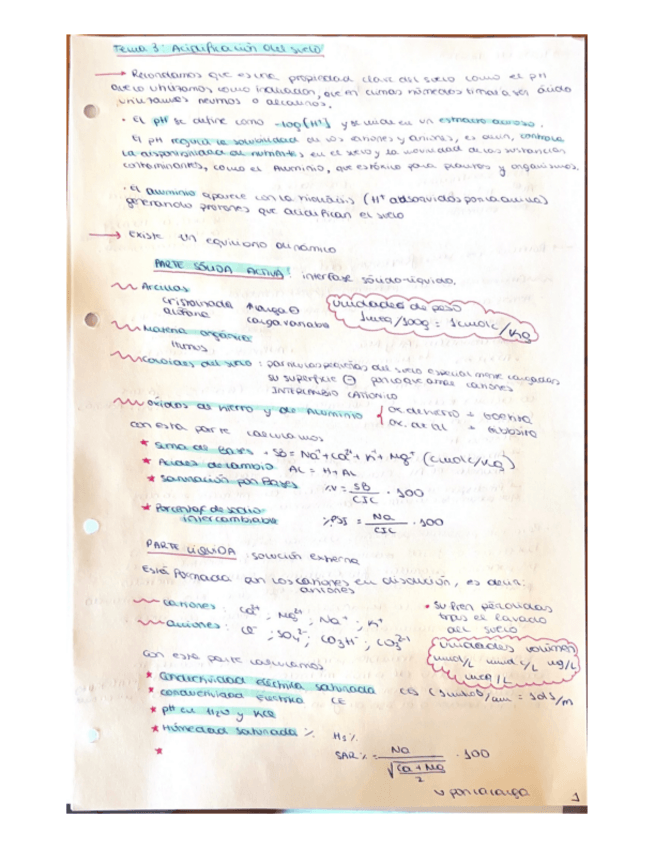 Tema 3: Acidificación del suelo
→ Recordamos que es una propiedad clave del suelo como el pH
que lo utilizamos como indicador, que en cursos números timará ser ácido
utilizamos neutros o alcalinos.
• el pH se define como -log(H⁺) y se mide en un extracto acuoso.
El pH regula la solubilidad de los cationes y aniones, es decir, controla
la disponibilidad de nutrientes en el suelo y la movilidad de las sustancias
contaminantes, como el Aluminio, que es tóxico para plantas y organismos.
• el aluminio aparece con la hidrólisis (H⁺ adsorbidos por la arcilla)
generando protones que acidifican el suelo
→ Existe un equilibrio dinámico
PARTE SÓLIDA ACTIVA: interfase sólido-líquido.
Arcillas
cristalinidad carga ⊖
alófana carga variable
Unidades de peso
1meq/100g = 1cmolc/kg
Materia orgánica
Humus
Coloides del suelo: partículas pequeñas del suelo especialmente cargadas
su superficie ⊖ por lo que atrae cationes
INTERCAMBIO CATIÓNICO
óxidos de hierro y de Aluminio { ox. de hierro + goetita
ox. de al + gibbsita
con esta parte calculamos
★ Suma de Bases → SB = Na⁺ + Ca²⁺ + K⁺ + Mg⁺ (cmolc/kg)
★ Acidez de cambio AC = H + AL
★ Saturación por Bases %V = SB/CIC · 100
★ Porcentaje de sodio
intercambiable %PSI = Na/CIC · 100
PARTE LÍQUIDA: solución externa
Está formada con los cationes en disolución, es decir:
aniones
cationes: Ca²⁺; Mg²⁺; Na⁺; K⁺
aniones: Cl⁻; SO₄²⁻; CO₃H⁻; CO₃²⁻
• Sufren pérdidas
tras el lavado
del suelo
Unidades volumen
mmol/L mmolc/L mg/L
meq/L
con esta parte calculamos
★ Conductividad eléctrica saturada
★ conductividad eléctrica CE (1mmho/cm = 1dS/m
★ pH en H₂O y KCl
★ Humedad saturada % Hs%
★ SAR% = Na/√((Ca+Mg)/2) · 100
por la carga
1